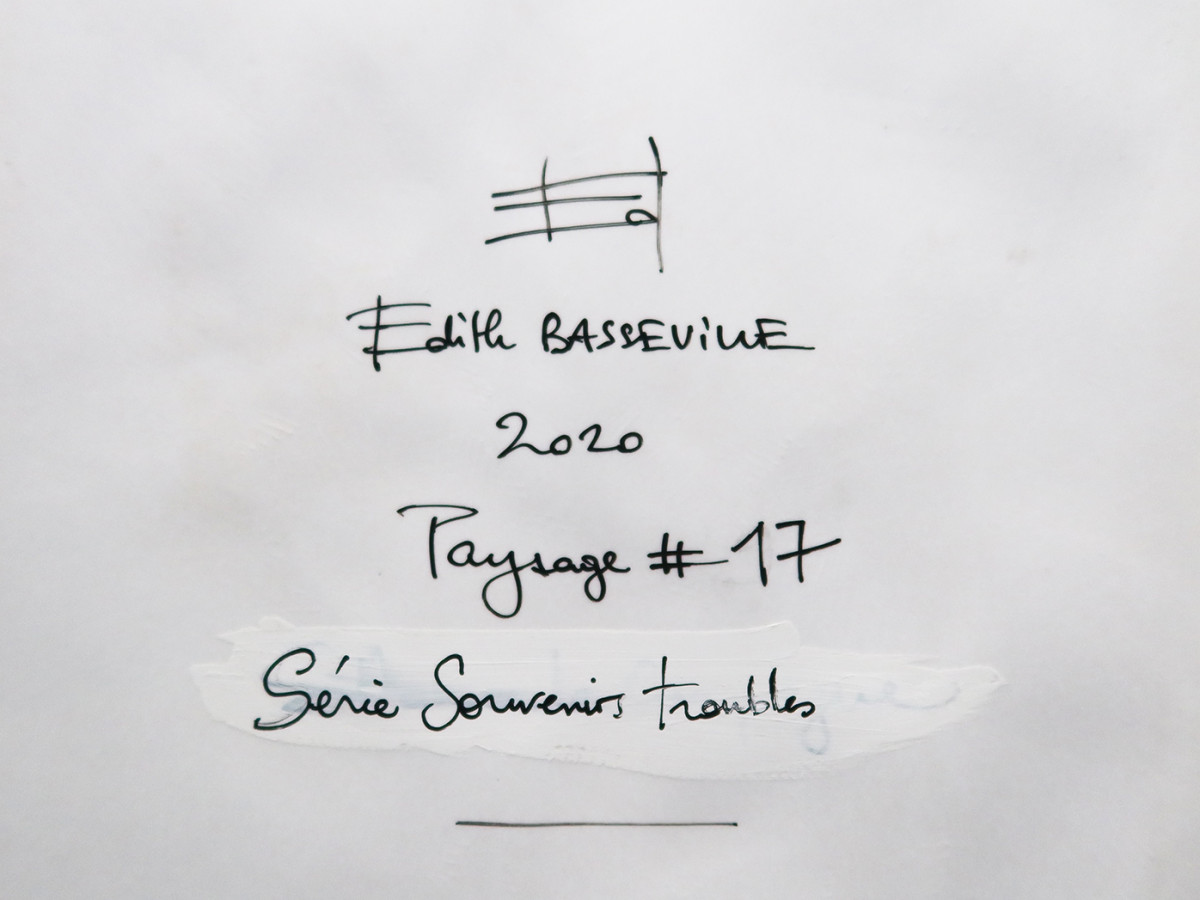 Edith BASSEVILLE
2020
Paysage # 17
Série Souvenirs troubles